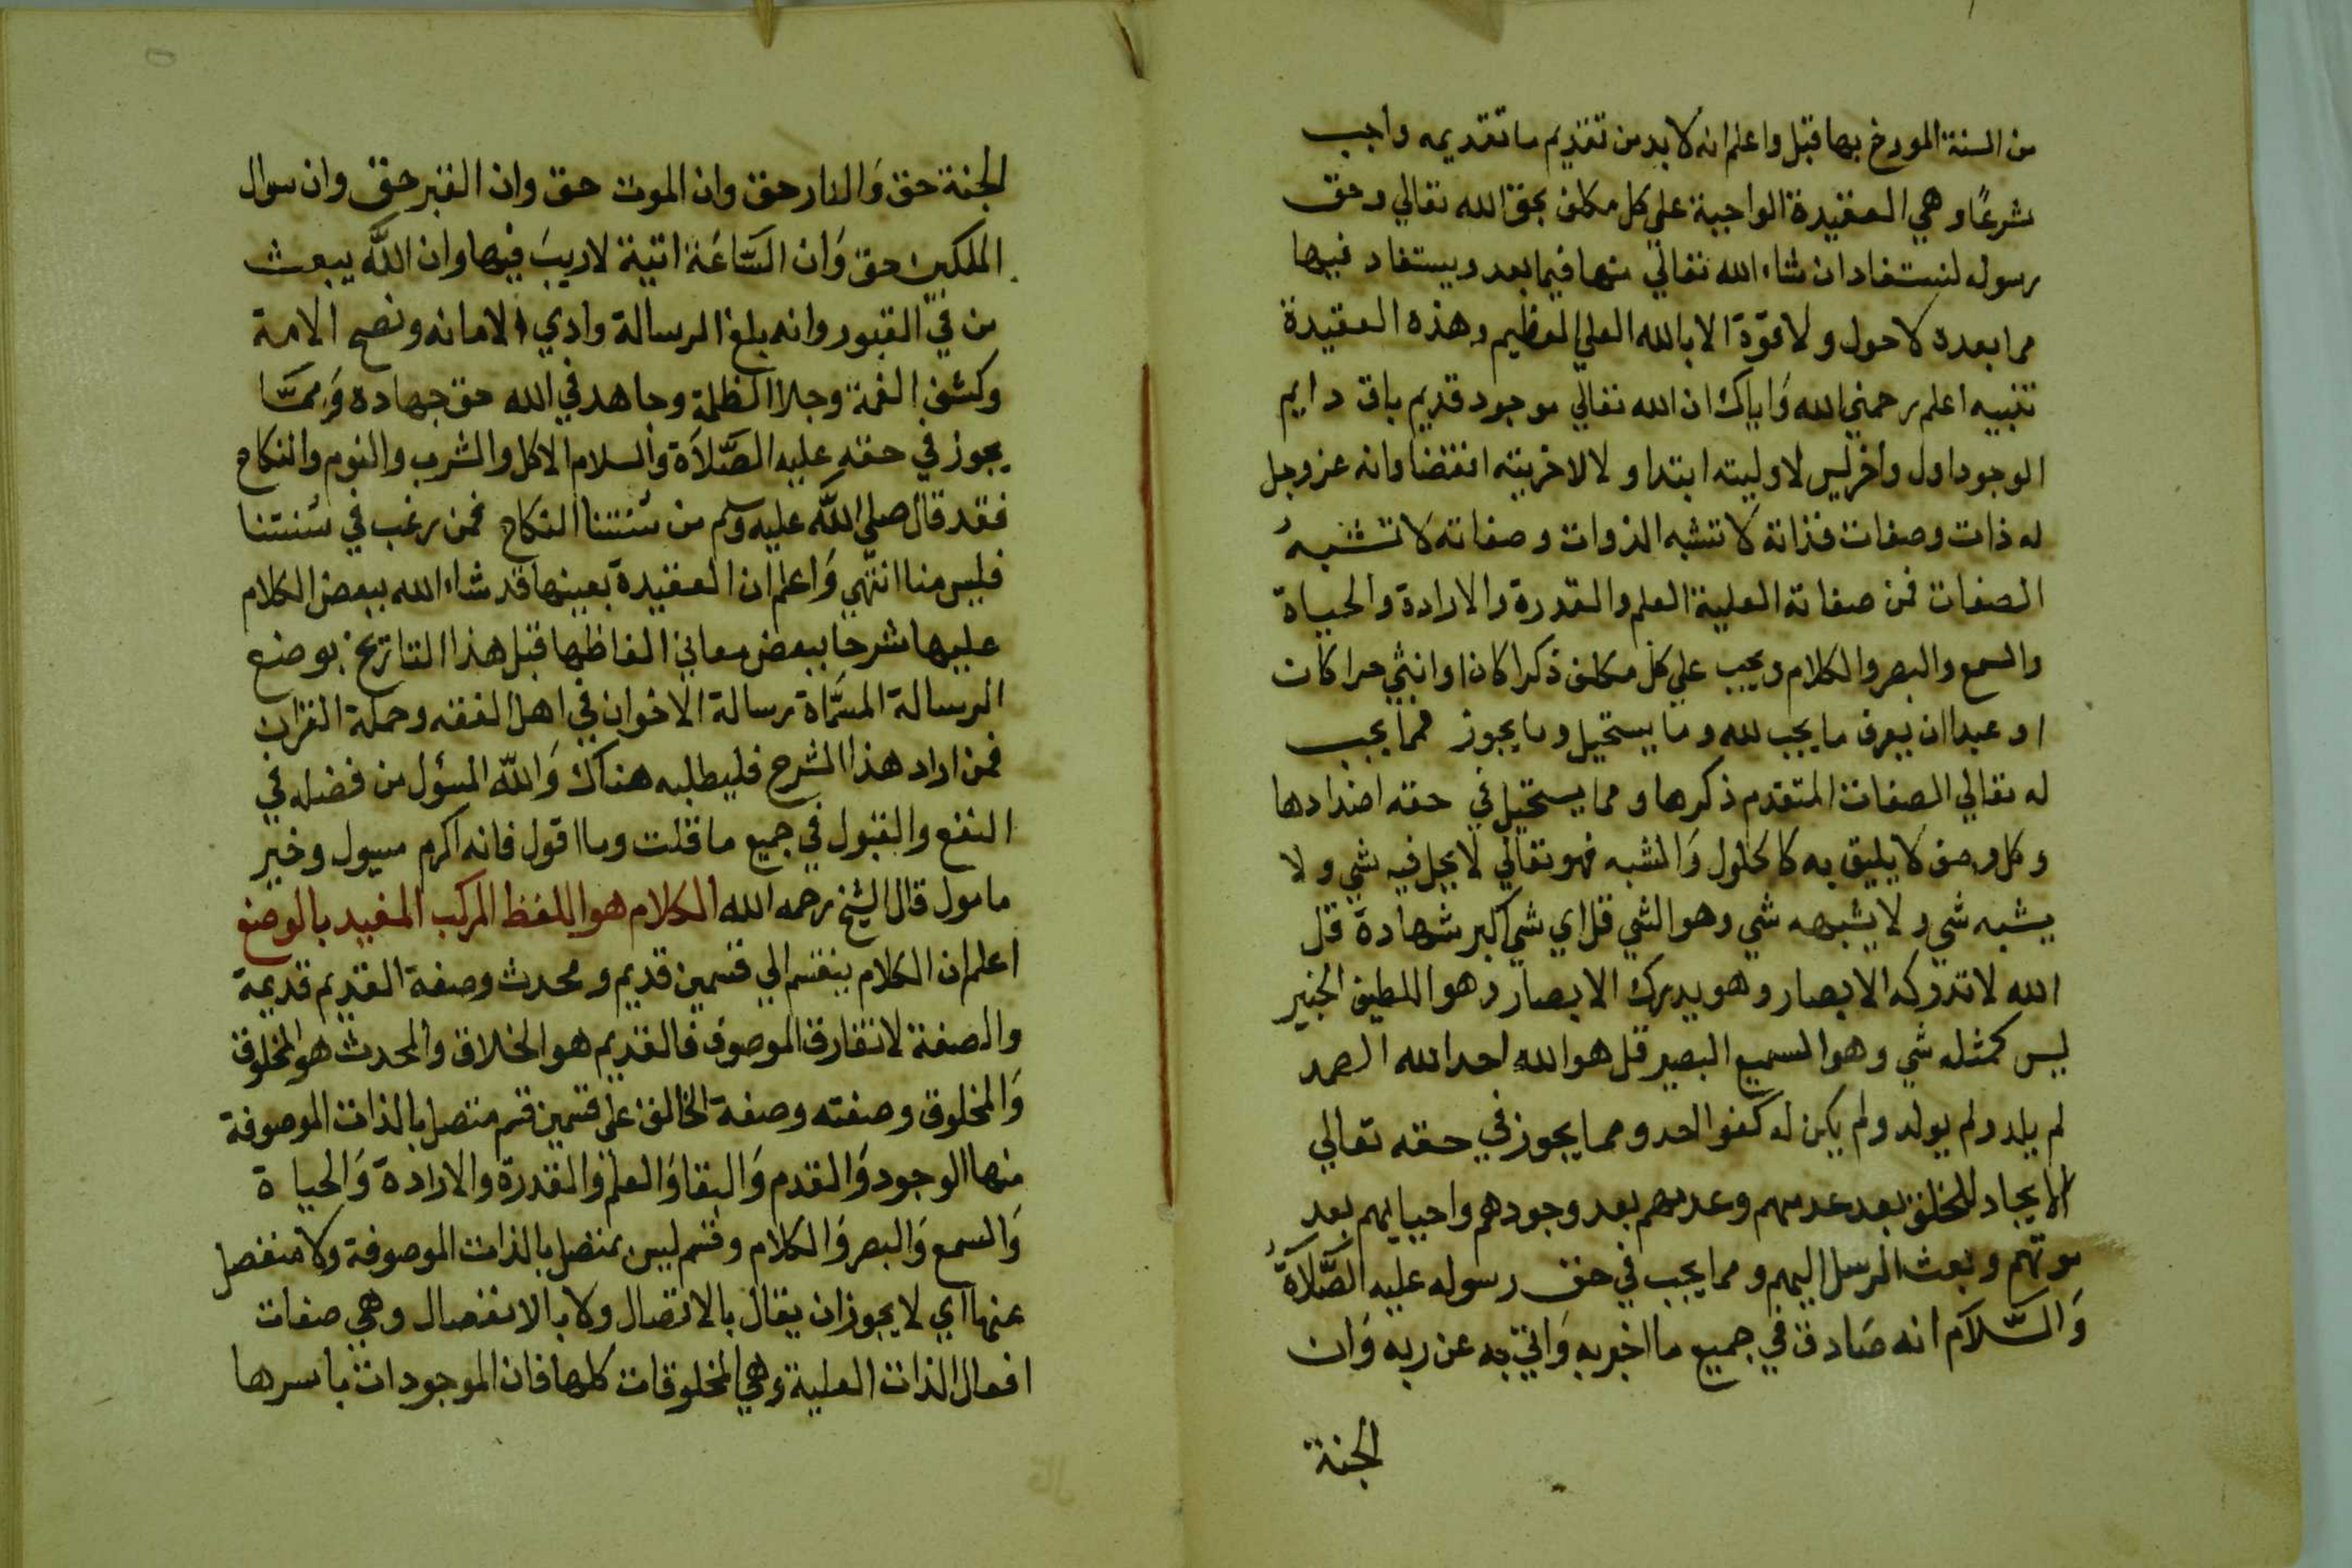 من السنة المورخ بها قبل واعلم انه لا بد من تقديم ما تقديمه واجب
شرعًا وهي العقيدة الواجبة علي كل مكلف بحق الله تعالي وحق
رسوله لنستفاد ان شاء الله تعالي منها فيما بعد ويستفاد فيها
مما بعده لا حول ولا قوة الا بالله العلي العظيم وهذه العقيدة
تنبيه اعلم رحمني الله وَاياك ان الله تعالي موجود قديم باق دايم
الوجود اول واخر ليس لاوليته ابتدا ولا لاخريته انقضا وانه عز وجل
له ذات وصفات فذاته لا تشبه الذوات وصفاته لا تشبهُ
الصفات فمن صفاته العلية العلم والقدرة والارادة والحياة
والسمع والبصر والكلام ويجب علي كل مكلف ذكرا كان او انثي حرا كان
او عبدا ان يعرف ما يجب لله وما يستحيل وما يجوز فمما يجب
له تعالي الصفات المتقدم ذكرها ومما يستحيل في حقه اضدادها
وكل وصف لا يليق به كالحلول وَالشبه فهو تعالي لا يحل فيه شي ولا
يشبه شي ولا يشبهه شي وهو الشي قل اي شي اكبر شهادة قل
الله لا تدركه الابصار وهو يدرك الابصار وهو اللطيف الخبير
ليس كمثله شي وهو السميع البصير قل هو الله احد الله الصمد
لم يلد ولم يولد ولم يكن له كفوا احد ومما يجوز في حقه تعالي
الايجاد للخلق بعد عدمهم وعدمهم بعد وجودهم واحيايهم بعد
موتهم وبعث الرسل اليهم ومما يجب في حق رسوله عليه الصَّلَاةُ
وَالسَّلَام انه صَادق في جميع ما اخبر به وَاتي به عن ربه وَان
الجنة
الجنة حق وَالنار حق وان الموت حق وان القبر حق وان سوال
الملكين حق وَان السَّاعَة اتية لا ريبَ فيها وان اللَّه يبعث
من في القبور وانه بلغ الرسالة وادي الامانه ونصح الامة
وكشف الغمة وجلا الظلمة وجاهد في الله حق جهاده وَممَّا
يجوز في حقه عليه الصَّلَاة وَالسلام الاكل والشرب والنوم والنكاح
فقد قال صلي اللَّه عليه وسلم من سُنتنا النكاح فمن رغب في سُنتنا
فليس منا انتهي وَاعلم ان العقيدة بعينها قد شاء الله ببعض الكلام
عليها شرحا ببعض معاني الفاظها قبل هذا التاريخ بوضع
الرسالة المسَّماة رسالة الاخوان في اهل الفقه وحملة القران
فمن اراد هذا الشرح فليطلبه هناك وَاللَّه المسؤل من فضله في
النفع والقبول في جميع ما قلت وما اقول فانه اكرم مسيول وخير
مامول قال الشيخ رحمه الله الكلام هو اللفظ المركب المفيد بالوضع
اعلم ان الكلام ينقسم الي قسمين قديم ومحدث وصفة القديم قديمة
والصفة لا تفارق الموصوف فالقديم هو الخلاق والمحدث هو المخلوق
وَالمخلوق وصفته وصفة الخالق علي قسمين قسم متصل بالذات الموصوفة
منها الوجود وَالقدم وَالبقا وَالعلم وَالقدرة والارادة وَالحياة
وَالسمع وَالبصر وَالكلام وقسم ليس بمتصل بالذات الموصوفة ولا منفصل
عنها اي لا يجوز ان يقال بالاتصال ولا بالانفصال وهي صفات
افعال الذات العلية وهي المخلوقات كلها فان الموجودات باسرها